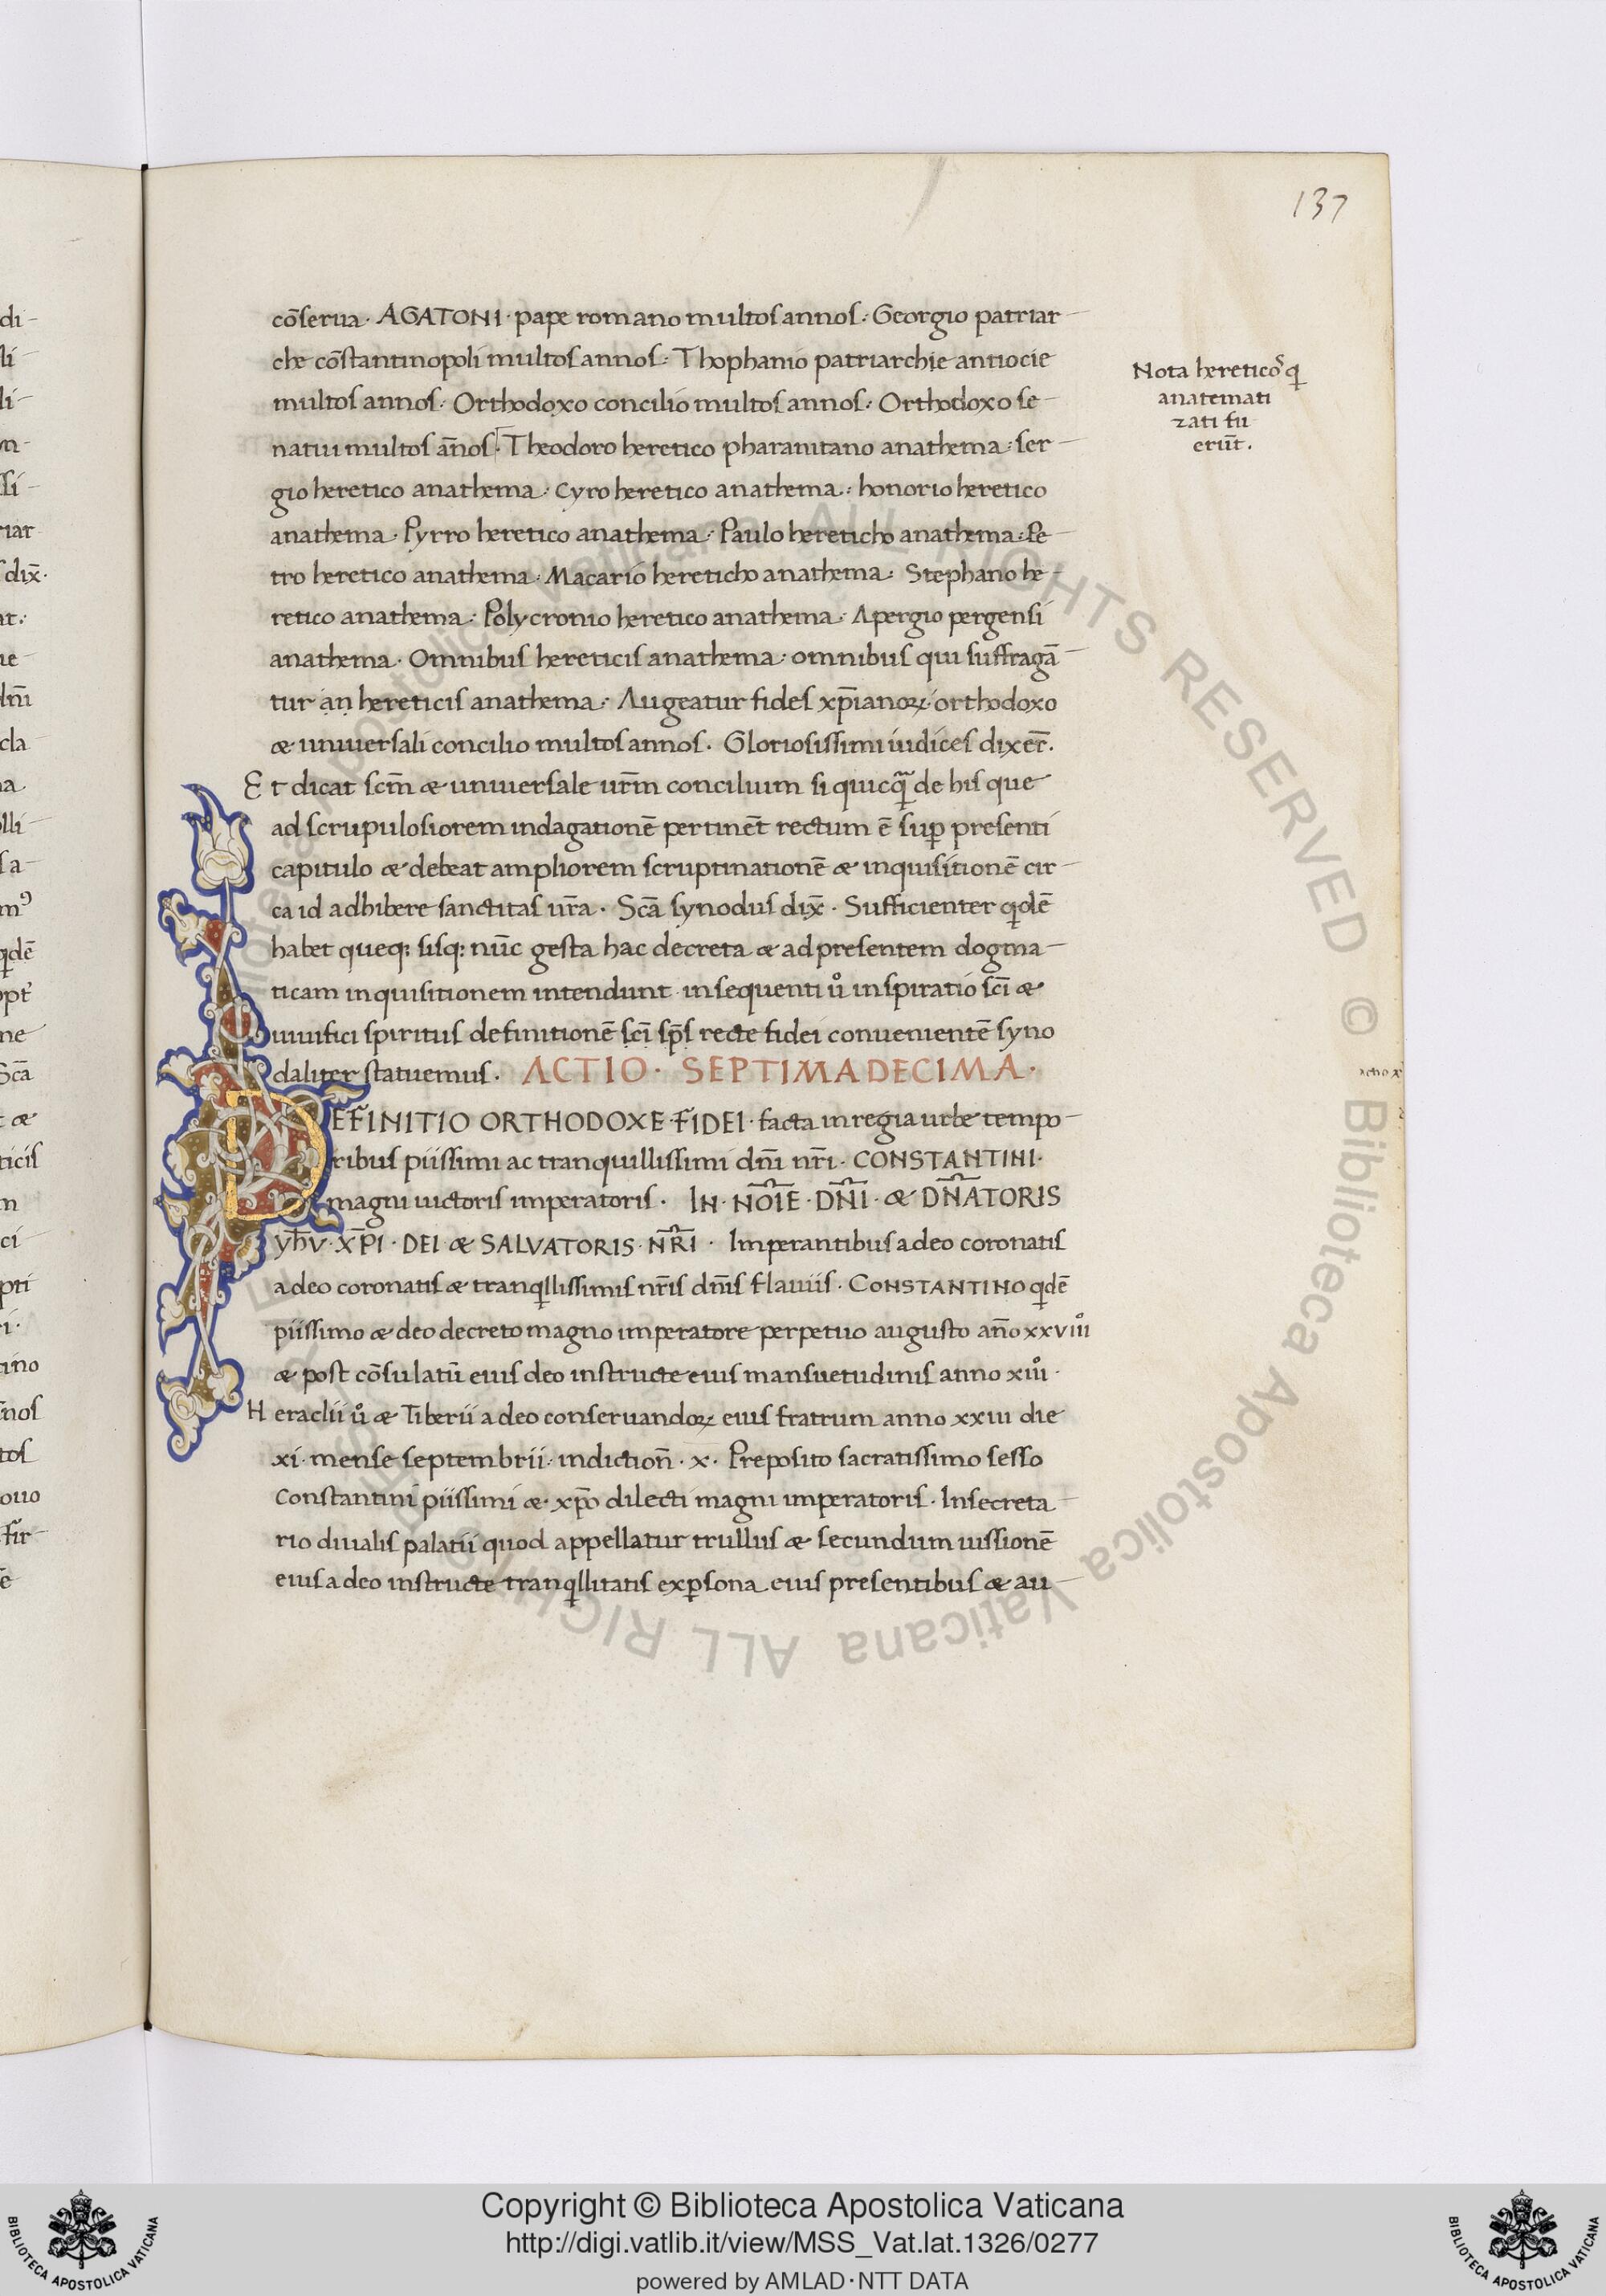 137
cōserua · AGATONI · pape romano multos annos : Georgio patriar
che cōstantinopoli multos annos : Thophanio patriarchie antiocie
multos annos : Orthodoxo concilio multos annos : Orthodoxo se
natui multos an̄os · Theodoro heretico pharanitano anathema : ser
gio heretico anathema : Cyro heretico anathema : honorio heretico
anathema · Pyrro heretico anathema : Paulo hereticho anathema : Pe
tro heretico anathema · Macario hereticho anathema : Stephano he
retico anathema : Polycronio heretico anathema : Apergio pergensi
anathema · Omnibus hereticis anathema : omnibus qui suffragā
tur an hereticis anathema : Augeatur fides xp̄ianoꝝ · orthodoxo
æ uniuersali concilio multos annos · Gloriosissimi iudices dixer̄ ·
Et dicat scm̄ æ uniuersale ur̄m concilium si quicq̄ de his que
ad scrupulosiorem indagationē pertinēt rectum ē suꝑ presenti
capitulo æ debeat ampliorem scruptinationē æ inquisitionē cir
ca id adhibere sanctitas ur̄a · Scā synodus dix̄ · Sufficienter qdē
habet queq: sisq: nūc gesta hac decreta æ ad presentem dogma
ticam inquisitionem intendunt · insequenti uͦ inspiratio sc̄i æ
uiuifici spiritus definitionē sc̄i sp̄s recte fidei conuenientē syno
daliter statuemus · ACTIO · SEPTIMADECIMA ·
DEFINITIO ORTHODOXE · FIDEI · facta in regia urbe tempo
ribus piissimi ac tranquillissimi dn̄i nr̄i · CONSTANTINI ·
magni uictoris imperatoris · IN · NOĪE · DN̄I · æ DN̄ATORIS
yh̄V · XP̄I · DEI æ SALVATORIS · NR̄I · Imperantibus adeo coronatis
adeo coronatis æ tranqllissimis nr̄is dn̄is flauiis · CONSTANTINO qdē
piissimo æ deo decreto magno imperatore perpetuo augusto an̄o xxviiiͦ
æ post cōsulatū eius deo instructe eius mansuetudinis anno xiiiͦ ·
Heraclii uͦ æ Tiberii adeo conseruandoꝝ eius fratrum anno xxiii die
xi · mense septembrii · indiction̄ · x · Preposito sacratissimo sesso
Constantini piissimi æ · xp̄o dilecti magni imperatoris · Insecreta
rio diualis palatii quod appellatur trullus æ secundum iussionē
eius adeo instructe tranqllitatis exꝑsona eius presentibus æ au
Nota hereticoꝝ q
anatemati
zati fu
erūt .
Copyright © Biblioteca Apostolica Vaticana
http://digi.vatlib.it/view/MSS_Vat.lat.1326/0277
powered by AMLAD · NTT DATA
BIBLIOTECA APOSTOLICA VATICANA
BIBLIOTECA APOSTOLICA VATICANA